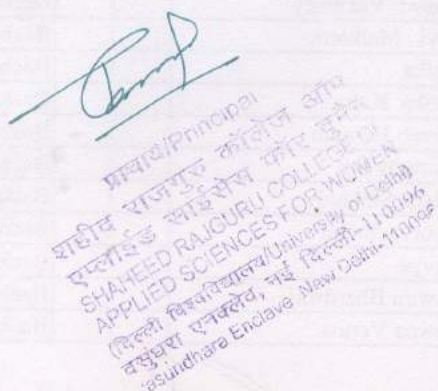 प्राचार्य/Principal
शहीद राजगुरु कॉलेज ऑफ
एप्लाईड साईंसेस फॉर वुमेन
SHAHEED RAJGURU COLLEGE OF
APPLIED SCIENCES FOR WOMEN
(दिल्ली विश्वविद्यालय/University of Delhi)
वसुंधरा एनक्लेव, नई दिल्ली-110096
Vasundhara Enclave, New Delhi-110096